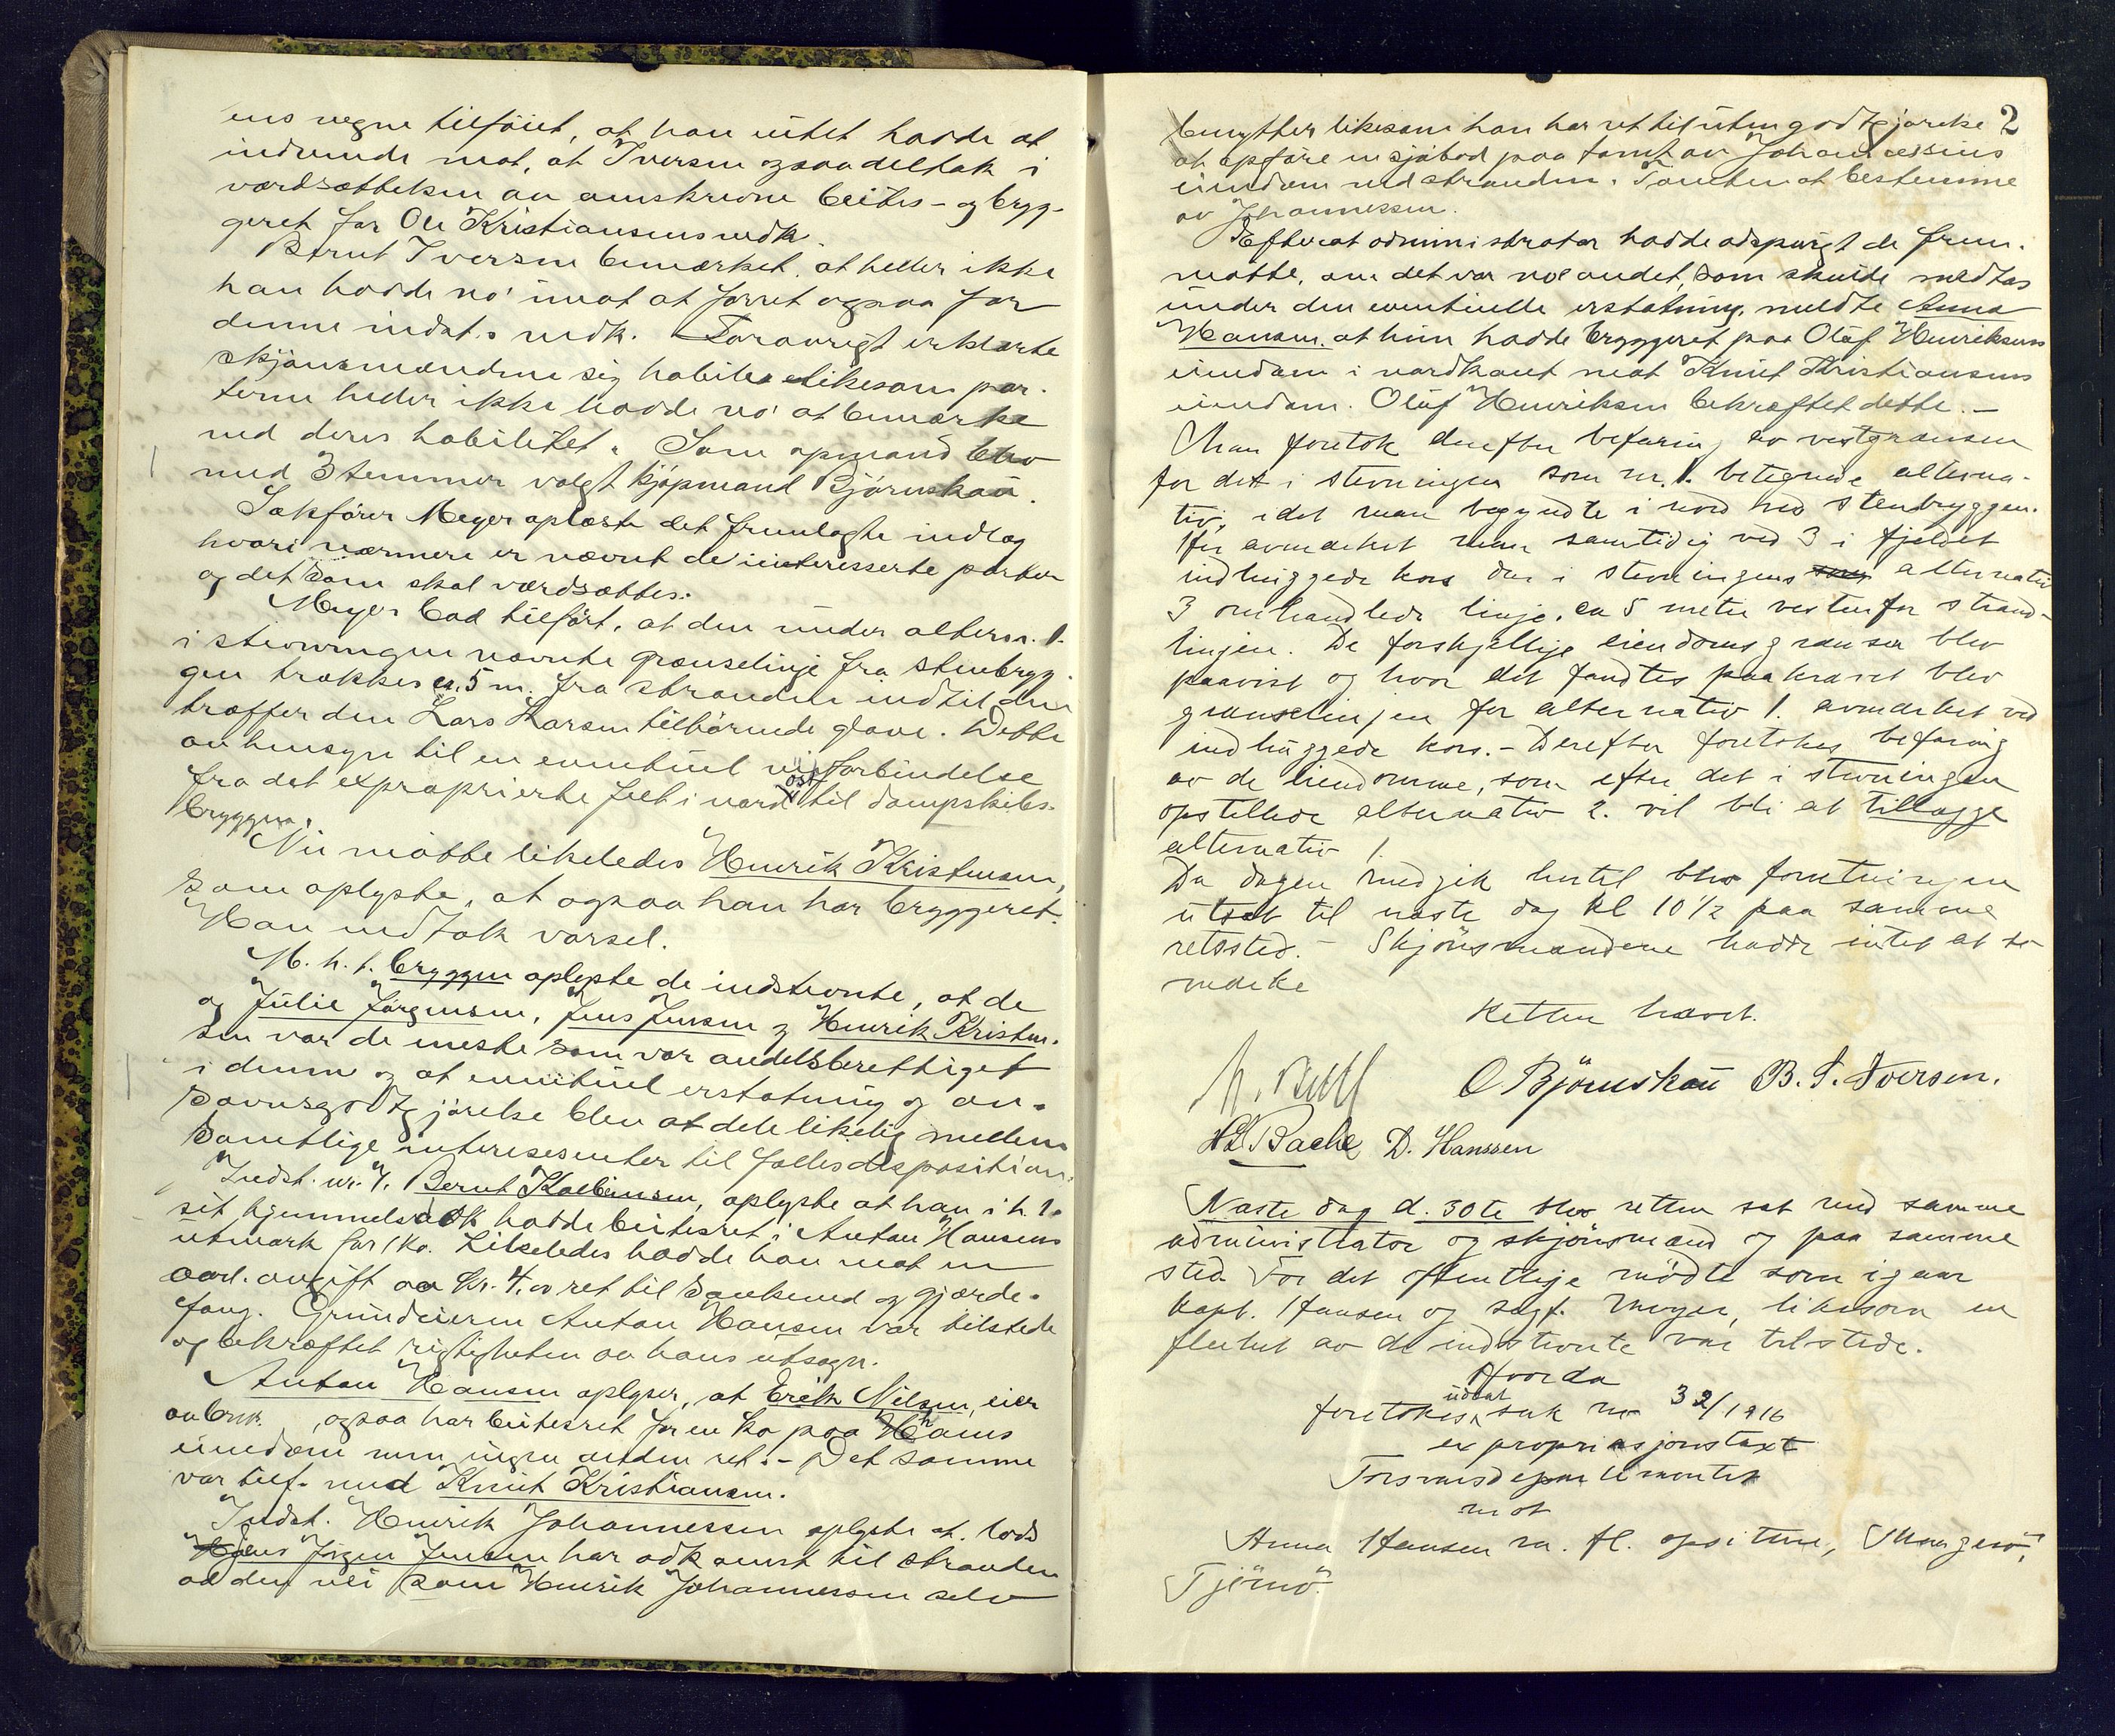 ens vegne tilföiet, at han intet hadde at
indvende mot, at Iversen ogsaa deltok i
værdsættelsen av omskrevne beites- og bryg-
geret for Ole Kristiansens vedk.
Bernt Iversen bemærket, at heller ikke
han hadde no' imot at forret ogsaa for
denne indst.s vedk. Forövrigt erklærte
skjönsmændene sig habile likesom par-
terne heller ikke hadde no' at bemærke
ved deres habilitet. Som opmand blev
med 3 stemmer valgt kjöpmand Björnskau.
Sakförer Meyer oplæste det fremlagte indlæg
hvori nærmere er nævnt de interesserte parter
og det som skal værdsættes.
Meyer bad tilfört, at den under altern. 1.
i stevningen nævnte grænselinje fra stenbryg-
gen trækkes ca. 5 m. fra stranden indtil den
træffer den Lars Larsen tilhörende have. Dette
av hensyn til en eventuel veiforbindelse
fra det exproprierte felt i nord öst til dampskibs-
bryggen.
Nu mötte likeledes Henrik Kristensen,
som oplyste, at ogsaa han har bryggeret.
Han vedtok varsel.
M. h. t. bryggen oplyste de indstevnte, at de
og Julie Jörgensen, Jens Jensen og Henrik Kristen-
sen var de eneste som var andelsberettiget
i denne og at eventuel erstatning og av-
savnsgodtgjörelse blev at dele likelig mellem
samtlige interessenter til fælles disposition.
Indst. nr. 7. Bernt Kolbensen, oplyste at han i h. t.
sit hjemmelsdok hadde beitesret i Anton Hansens
utmark for 1 ko. Likeledes hadde han mot en
aarl. avgift av kr. 4,00 ret til sankeved og gjærde-
fang. Grundeieren Anton Hansen var tilstede
og bekræftet rigtigheten av hans utsagn.
Anton Hansen oplyser, at Erik Nilsen, eier
av brk. , ogsaa har beitesret for en ko paa hans
eiendom men ingen anden ret. - Det samme
var tilf. med Knut Kristiansen.
Indst. Henrik Johannessen oplyste at bode
Hans Jörgen Jensen har adkomst til stranden
ad den vei som Henrik Johannessen selv
2
benytter likesom han har ret til uten godtgjörelse
at opföre en sjöbod paa tomt av Johannessens
eiendom ved stranden. Tomten at bestemme
av Johannessen.
Efterat administrator hadde adspurgt de frem-
mötte, om det var noe andet, som skulde medtas
under den eventuelle erstatning, meldte Anna
Hansen, at hun hadde bryggeret paa Olaf Henriksens
eiendom i nordkant mot Knut Kristiansens
eiendom. Olaf Henriksen bekræftet dette. -
Man foretok derefter befaring av vestgrænsen
for det i stevningen som nr. 1. betegnede alterna-
tiv, idet man begyndte i nord ved stenbryggen.
Her avmerket man samtidig ved 3 i fjeldet
indhuggede kors den i stevningens som alternativ
3 omhandlede linje, ca 5 meter vestenfor strand-
linjen. De forskjellige eiendomsgrænser blev
paavist og hvor det fandtes paakrævet blev
grænselinjen for alternativ 1. avmerket ved
indhuggede kors. - Derefter foretokes befaring
av de eiendomme, som efter det i stevningen
opstillede alternativ 2. vil bli at tillægge
alternativ 1.
Da dagen medgik hertil blev forretningen
utsat til næste dag kl 10 1/2 paa samme
retssted. - Skjönsmændene hadde intet at be-
merke
Retten hævet.
O Björnskau B. I. Iversen.
HL Bache D. Hanssen
Næste dag d. 30te blev retten sat med samme
administrator og skjönsmænd og paa samme
sted. For det offentlige mödte som igaar
kapt. Hansen og sagf. Meyer, likesom en
flerhet av de indstevnte var tilstede.
Hvorda
foretokes utsat sak nr 32/1916
expropriasjonstaxt
Forsvarsdepartementet
mot
Anna Hansen m. fl. opsittere, Mågerö,
Tjömö.